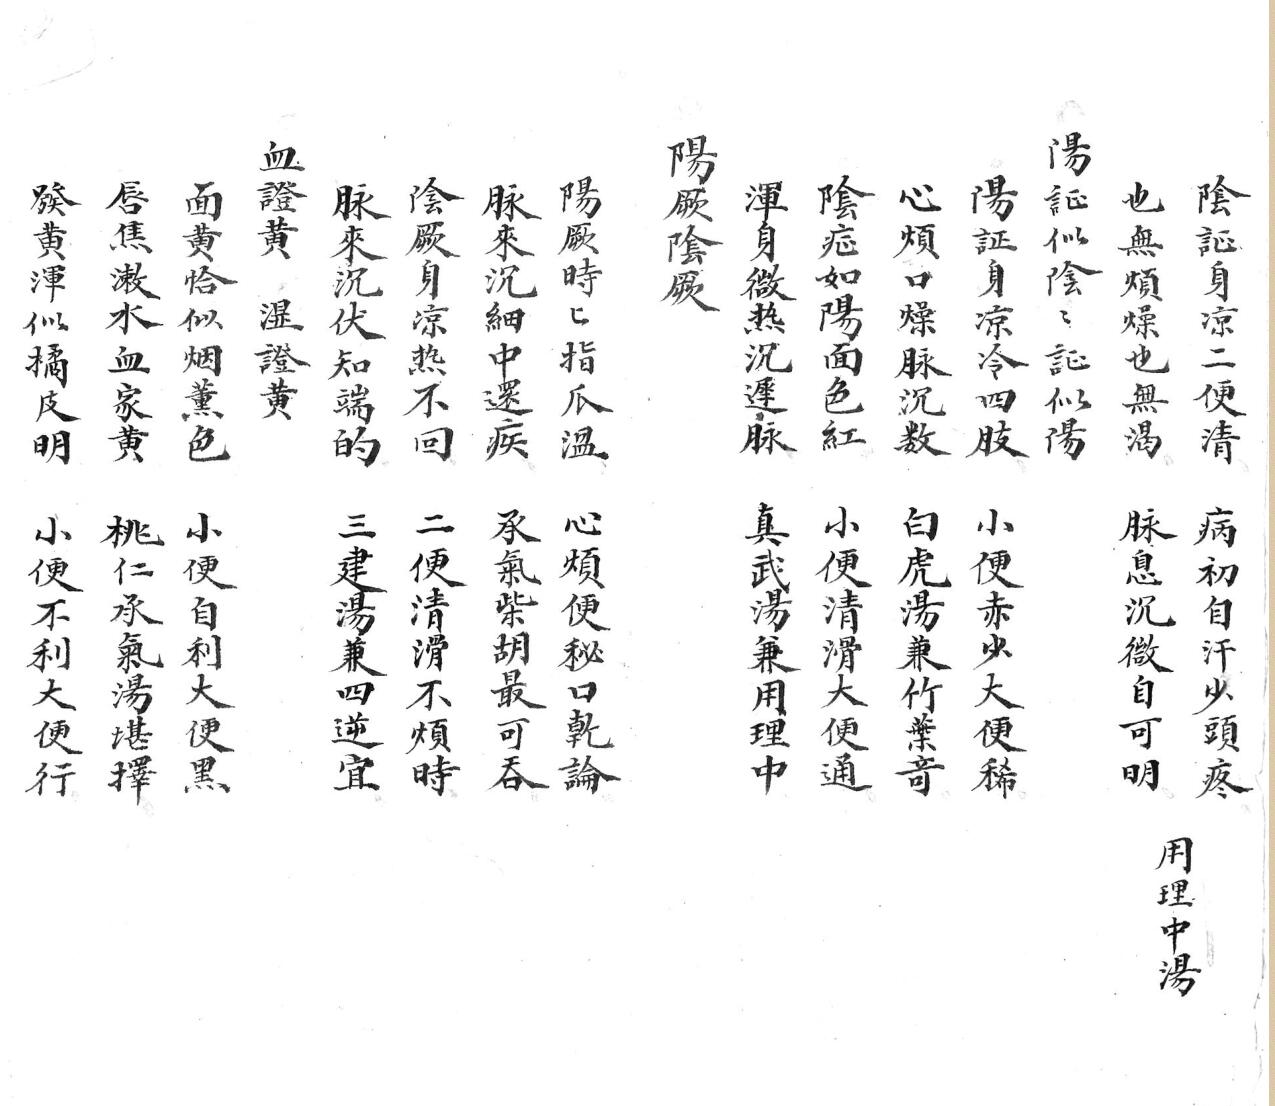 陰証身凉二便清 病初自汗少頭疼
也無煩燥也無渴 脉息沉微自可明
用理中湯
陽証似陰〻証似陽
陽証身凉冷四肢 小便赤少大便稀
心煩口燥脉沉数 白虎湯兼竹葉奇
陰症如陽面色紅 小便清滑大便通
渾身微热沉遲脉 真武湯兼用理中
陽厥陰厥
陽厥時〻指爪溫 心煩便秘口乾論
脉來沉細中還疾 承氣柴胡最可吞
陰厥身凉热不回 二便清滑不煩時
脉來沉伏知端的 三建湯兼四逆宜
血證黄 湿證黄
面黄恰似烟薰色 小便自利大便黑
唇焦漱水血家黄 桃仁承氣湯堪擇
發黄渾似橘皮明 小便不利大便行